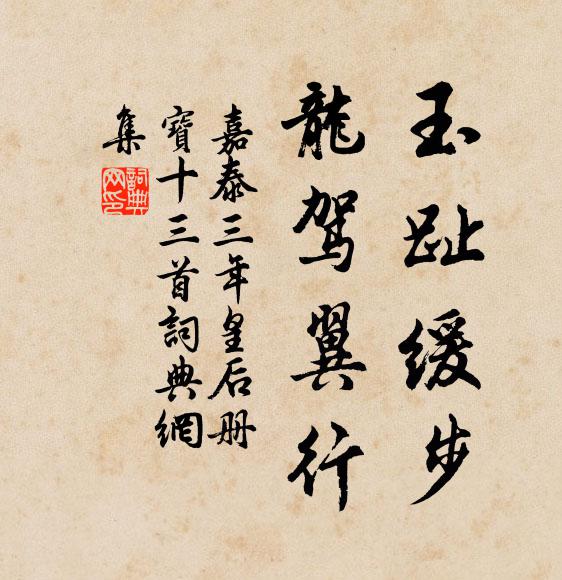 玉趾緩步
龍駕翼行
嘉泰三年皇后册
寶十三首詞典網
集
詞典
网印